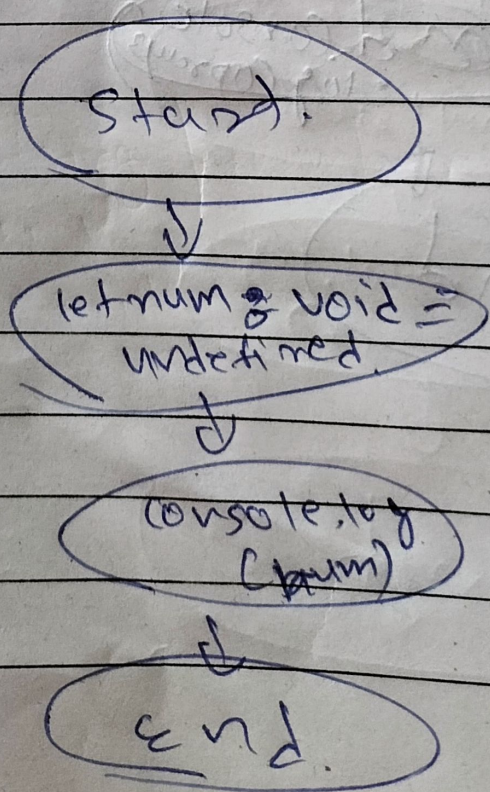 Start.
let num : void =
undefined.
console.log
(num)
End.